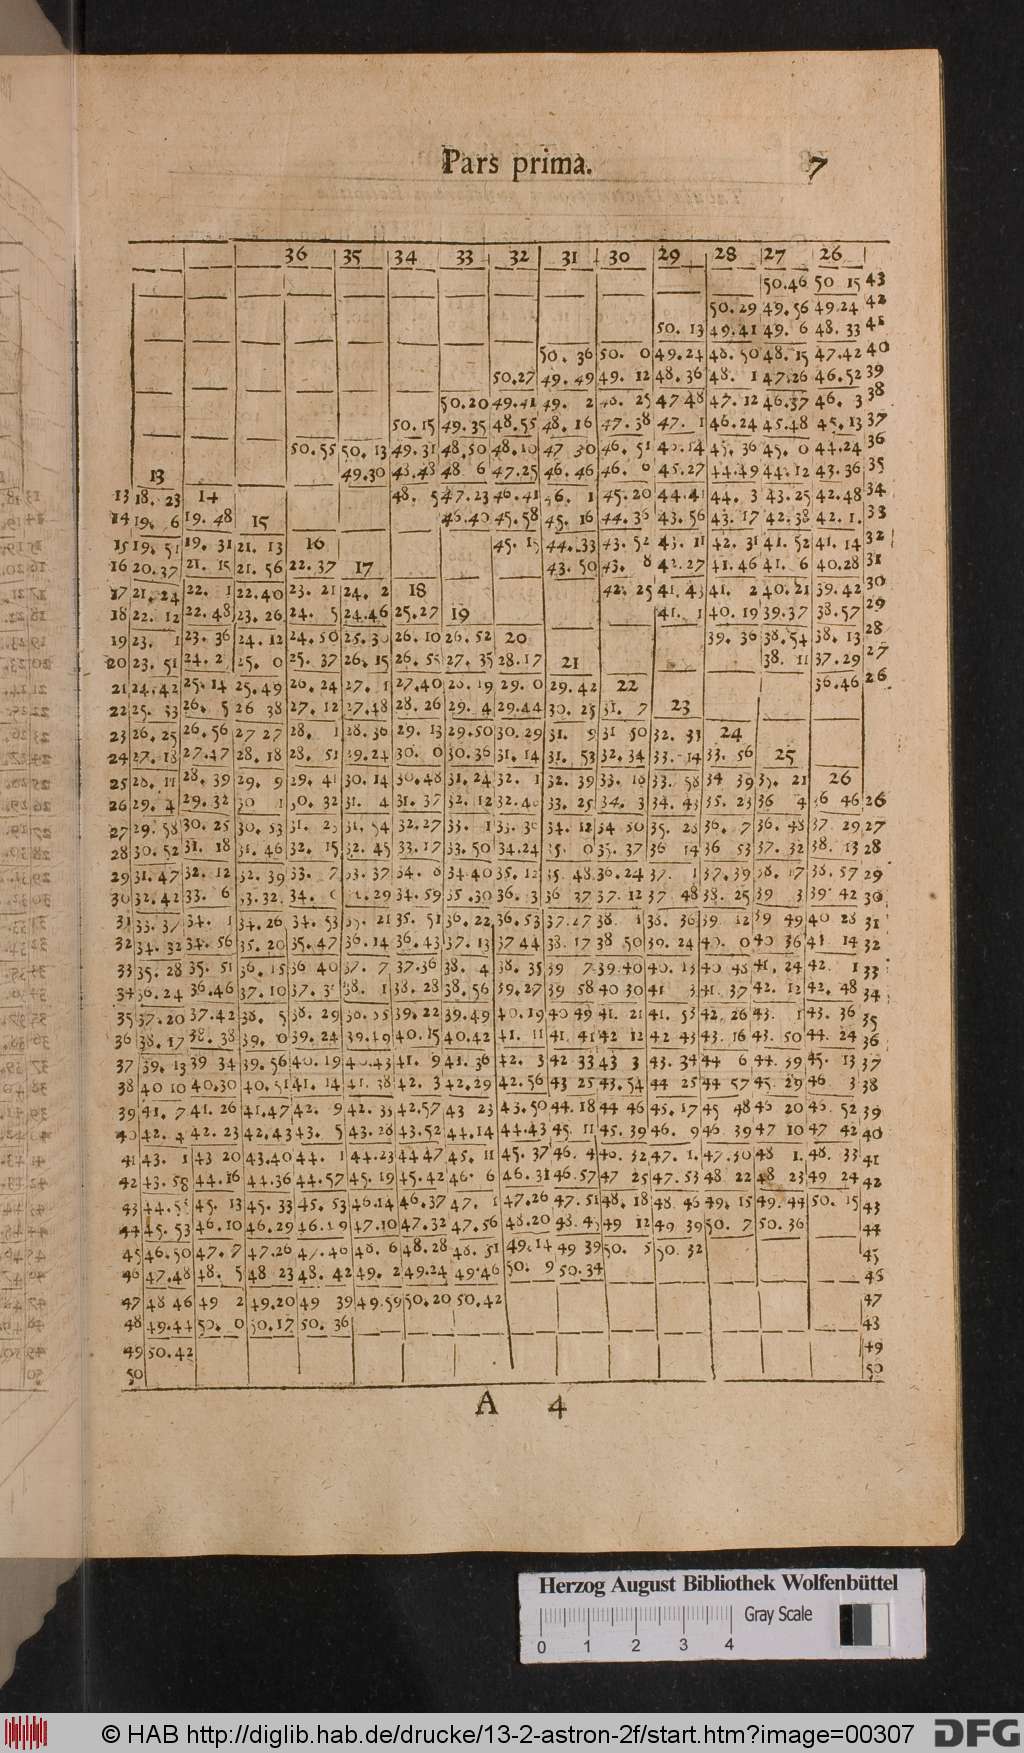 Pars prima. 7
36 35 34 33 32 31 30 29 28 27 26
50.46 50 15 43
50.29 49.56 49.24 42
50. 13 49.41 49. 6 48. 33
50. 36 50. 0 49.24 48. 50 48. 15 47.42 40
50.27 49. 49 49. 12 48. 36 48. 1 47.26 46.52 39
50.20 49.41 49. 2 25 47 48 47. 12 46.37 46. 3 38
50. 15 49. 35 48. 55 48. 16 47. 38 47. 1 46.24 45.48 45. 13 37
50. 55 50. 13 49. 31 48. 50 48. 10 47 30 46. 51 45. 36 45. 0 44.24 36
13 49.30 48. 6 47.25 46. 46 46. 0 45.27 44.49 44. 12 43. 36 35
13 18. 23 14 48. 5 47.23 46.41 1 45.20 44.41 44. 3 43.25 42.48 34
14 19. 6 19. 48 15 46.40 45.58 45. 16 44. 36 43. 56 43. 17 42.38 42. 1. 33
15 19. 51 19. 31 21. 13 16 45. 44.33 43. 52 43. 11 42. 31 41. 52 41. 14 32
16 20.37 21. 15 21. 56 22.37 17 43. 50 43. 8 42.27 41.46 41. 6 40.28 31
17 21. 24 22. 1 22.40 23. 21 24. 2 18 42. 25 41. 43 41. 2 40.21 39.42 30
18 22. 12 22.48 23. 26 24. 5 24.46 25.27 19 41. 1 40. 19 39.37 38.57 29
19 23. 1 23. 36 24. 12 24. 50 25. 30 26. 10 26. 52 20 39. 36 38.54 38. 13 28
20 23. 51 24. 2 25. 0 25. 37 26. 15 27. 35 28.17 21 38. 11 37.29 27
21 24.42 25. 14 25.49 26. 24 27. 1 27.40 19 29. 0 29.42 22 36.46 26
22 25. 33 26. 5 26 38 27. 12 27.48 28. 26 29. 4 29.44 30. 25 31. 7 23
23 26. 25 26. 56 27 27 28. 1 28. 36 29. 13 29.50 30. 29 31. 9 31 50 32. 33 24
24 27. 18 27.47 28. 18 28. 51 29.24 30. 0 30.36 31. 14 31. 53 32. 34 33. 14 33. 56 25
25 28. 11 28. 39 29. 9 29. 41 30. 14 30.48 31. 24 32. 1 32. 39 33. 33. 58 34 39 21 26
26 29. 4 29. 32 30 1 30. 32 31. 4 31. 37 32. 12 33. 25 34. 3 34. 43 35. 23 36 4 36 46 26
27 29. 58 30. 25 30. 53 31. 31. 54 32.27 33. 1 34. 12 34 50 35. 28 36. 7 36. 48 37 29 27
28 30. 52 31. 18 31. 46 32. 15 32. 45 33.17 33. 50 34.24 35. 0 35. 37 36 14 36 53 37. 32 38. 13 28
29 31.47 32. 12 32. 39 33. 7 33. 37 34. 34 40 35. 12 35. 48 36.24 37. 1 37.39 38. 17 38. 57 29
30 32. 42 33. 6 33.32 34. 29 34. 59 35.30 36. 3 36 37 37. 12 37 48 38. 25 39 3 39 42 30
31 34. 1 34. 26 34. 53 21 35. 51 36. 22 36. 53 37.27 38. 1 38. 36 39. 12 39 49 40 28 31
32 34. 32 34. 56 35. 20 35. 47 36.14 36. 43 37. 13 37 44 38. 17 38 50 39. 24 0 40 36 41 14 32
33 35. 28 35. 51 36. 15 36 40 37. 7 37.36 38. 4 38. 35 39 7 39.40 40. 13 40 48 41. 24 42. 1 33
34 36. 24 36.46 37. 10 37. 38. 1 38. 28 38. 56 39.27 39 58 40 30 41 3 41. 37 42. 12 42. 48 34
35 37. 20 37.42 38. 5 38. 29 39.22 39.49 40.19 40 49 41. 21 41. 53 42. 26 43. 1 43. 36 35
36 38. 17 38. 38 39. 0 39. 24 39.49 40.15 40.42 41. 11 41. 41 42 12 42 43 43. 16 43. 50 44. 24 36
37 39. 13 39 34 39. 56 40.19 40.43 41. 9 41. 36 42. 3 42 33 43 3 43. 34 44 6 44. 39 45. 13 37
38 40 10 40.30 40. 51 41. 14 41. 38 42. 3 42.29 42. 56 43 25 43. 54 44 25 44 57 45. 29 46 3 38
39 41. 7 41. 26 41.47 42. 9 42. 33 42.57 43 23 43. 50 44. 18 44 46 45. 17 45 48 46 20 46. 52 39
40 42. 4 42. 23 42.43 43. 5 43.28 43.52 44.14 44.43 45. 11 45. 39 46. 9 46 39 47 10 47 42 40
41 43. 1 43 20 43.40 44. 1 44.23 44 47 45. 11 45. 37 46. 4 46. 32 47. 1. 47. 30 48 1. 48. 33 41
42 43. 58 44.16 44.36 44.57 45. 19 45.42 46. 6 46. 31 46.57 47 25 47.53 48. 22 48 23 49 24 42
43 45. 13 45. 33 45. 53 46.14 46.37 47. 1 47.26 47. 51 48. 18 48 46 49. 15 49. 44 50. 15 43
44 45. 53 46. 10 46.29 47.10 47.32 47.56 48.20 48. 45 49 12 49 39 50. 7 50. 36 44
45 46.50 47. 7 47.26 47. 46 48. 6 48.28 48. 51 49.14 49 39 50. 5 50. 32 45
46 47.48 48. 5 48 23 48. 42 49. 2 49.24 49.46 50. 9 50.34 46
47 48 46 49 2 49.20 49 39 49.59 50.20 50.42 47
48 49.44 50. 0 50.17 50. 36
49 50.42 49
50 50
A 4
Herzog August Bibliothek Wolfenbüttel
Gray Scale
0 1 2 3 4
© HAB http://diglib.hab.de/drucke/13-2-astron-2f/start.htm?image=00307 DFG